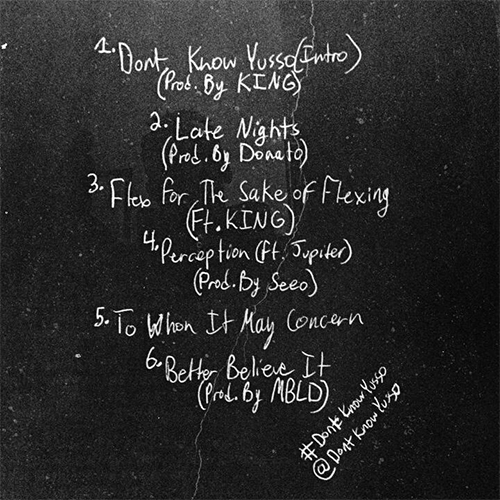 1. Dont Know Yusso (Intro)
(Prod. By KING)
2. Late Nights
(Prod. By Donato)
3. Flex for The Sake of Flexing
(Ft. KING)
4. Perception (ft. Jupiter)
(Prod. By Seeo)
5. To Whom It May Concern
6. Better Believe It
(Prod. By MBLD)
#DontKnowYusso
@DontKnowYusso